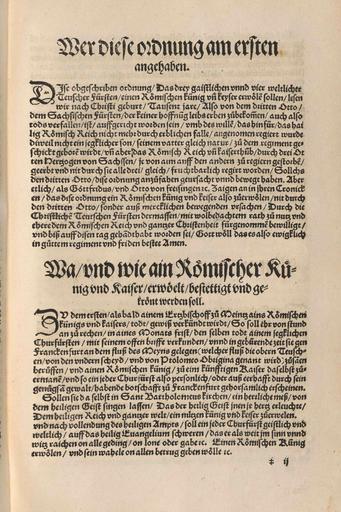 Wer diese ordnung am ersten
angehaben.
DIse obgeschriben ordnung / Das drey gaistlichen vnnd vier weltliche
Teutscher Fürsten / einen Römischen künig vñ keyser erwölē sollen / lisen
wir nach Christi geburt / Tausent jare / Also von dem dritten Otto /
dem Sächsischen Fürsten / der keiner hoffnūg leibs erben zůbekomē / auch also
tods verfallen / ist / auffgericht worden sein / vnd des willē / das hinfür / das hai
lig Römisch Reich nicht mehr durch erblichen falle / angenomen regiert wurde
dieweil nicht ein jegklicher son / seinem vatter gleich natur / zů dem regiment ge-
schickt geborē würt / vñ aber das Römisch Reich vñ kaiserthůb / durch drei Ot
ten Hertzogen von Sachssen / je von aim auff den andern zů regieren gestorbē /
geerbt vnd nit durch sie alle drei / gleich / fruchtbarlich regiert worden / Sollichs
den dritten Otto / dise ordnung anzůfahen geursacht vnd bewegt haben. Aber
etlich / als Gotfridus / vnd Otto von freisingen rc. Zaigen an in iren Cronick
en / das dise ordnung ein Römischen künig vnd keiser also zůerwölen / nit durch
den dritten Otto / sonder auß mercklichen bewegnden vrsachen / Durch die
Christliche Teutschen Fürsten dermassen / mit wolbedachtem rath zů nutz vnd
ehere dem Römischen Reich vnd gantzer Christenheit fürgenommē bewilligt /
vnd biß auff disen tag gehandthabt worden sei / Gott wöll das es also ewigklich
in gůttem regiment vnd friden beste Amen.
Wa / vnd wie ain Römischer Kü-
nig vnd Kaiser / erwöelt / bestettigt vnd ge-
krönt werden soll.
ZV dem ersten / als bald ainem Ertzbischoff zů Meintz ains Römischen
künigs vnd kaisers / tode / gewiß verkündt wirdt / So soll jhr von stund
an zů rechen / in aines Monats frist / den selben tode ainem jegklichen
Churfürsten / mit seinem offen brieff verkünden / vnnd in gebürende zeit sie gen
Francken furt an dem fluß des Meyns gelegen / welcher fluß die obern Teutsch-
en / von den vndern scheyd / vnd von Ptolomeo Obrigina genant wird / zůsamen
berüffen / vnd ainen Römischen künig / zů eim künfftigen Kaiser daselbst zů-
ernanē / vnd so ein jeder Churfürst also persönlich / oder auß ehehafft durch sein
genůgsā gewalt / habende botschafft zů Franckenfurt gehorsamlich erscheinen.
Sollen sie da selbst in Sant Bartholomeus kirchen / ein herrliche meß / von
dem heiligen Geist singen lassen / Das der heilig Geist jnen je hertz erleuchte /
Dem heiligen Reich vnd gantzer welt / ein nützen künig vnd keiser zůerwelen.
vnd nach vollendung des heiligen Ampts / soll ein jeder Churfürst gaistlich vnd
weltlich / auff das heilig Euangelium schweren / das er als weit jm sinn vnnd
witz raichen on alle geding / on lone oder gabe rc. Einen Römischen Künig
erwölen / vnd sein wahele on allen betrug geben wölle rc.
ij